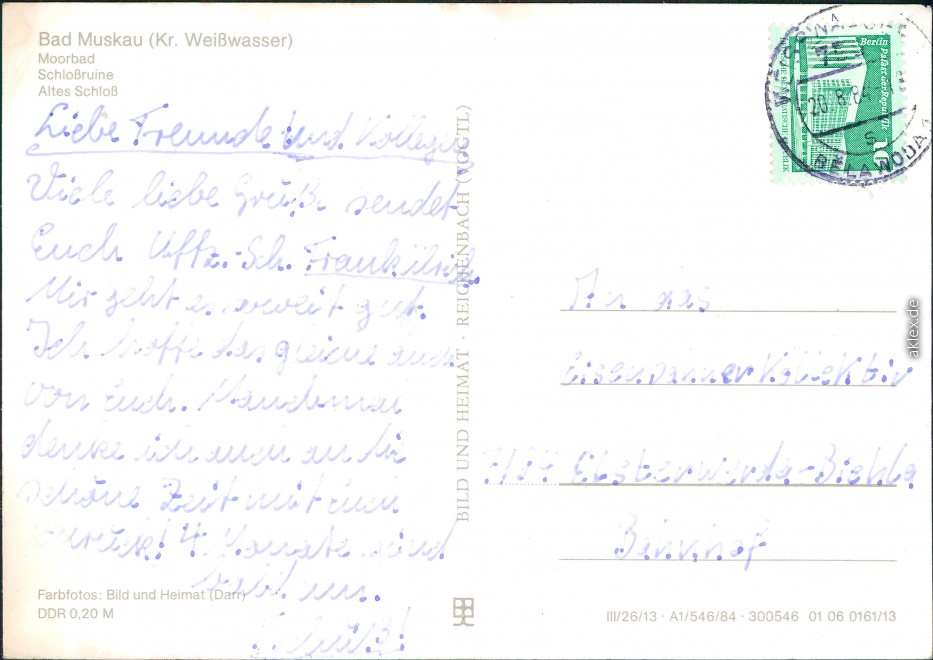 Bad Muskau (Kr. Weißwasser)
Moorbad
Schloßruine
Altes Schloß
Liebe Freunde und Kollegen
Viele liebe Grüße sendet
Euch Uffz.-Sch. Frank
Mir geht es soweit gut.
Ich hoffe das gleiche auch
von Euch. Manchmal
denke ich auch an die
schöne Zeit mit Euch
zurück! 4 Monate sind
bald um.
Tschüß!
Farbfotos: Bild und Heimat (Darr)
DDR 0,20 M
BILD UND HEIMAT · REICHENBACH (VOGTL)
Berlin Palast der Republik
10
20.8.84
An das
Eisenbahnerkollektiv
Elsterwerda-Biehla
Bahnhof
III/26/13 · A1/546/84 · 300546 01 06 0161/13
aklex.de